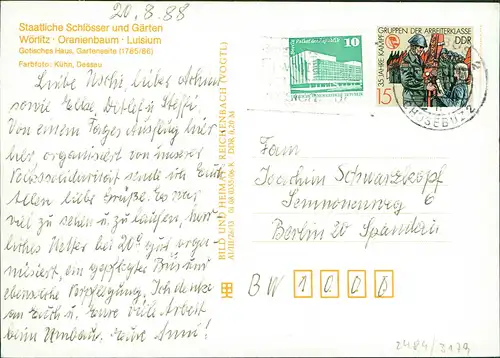 20.8.88
Staatliche Schlösser und Gärten
Wörlitz · Oranienbaum · Luisium
Gotisches Haus, Gartenseite (1785/86)
Farbfoto: Kühn, Dessau
Liebe Uschi liebe
sowie Detlef u. Steffi
Von einem Tages Ausflug hier
her, organisiert von unserer
Volkssolidarität sende ich Euch
Allen liebe Grüße. Es war
viel zu sehen u. zu laufen, herr
liches Wetter bei 20° gut orga
nisiert, ein gepflegter Bus und
ebensolche Verpflegung. Ich denke
an Euch u. Eure viele Arbeit
beim Umbau. Eure Anni!
BILD UND HEIMAT REICHENBACH (VOGTL)
01 08 0333/06 K DDR 0,20 M
10
35 JAHRE KAMPFGRUPPEN DER ARBEITERKLASSE
DDR
15
Fam
Joachim Schwarzkopf
Semnonenweg 6
Berlin 20 Spandau
BW 1000
2484/2179